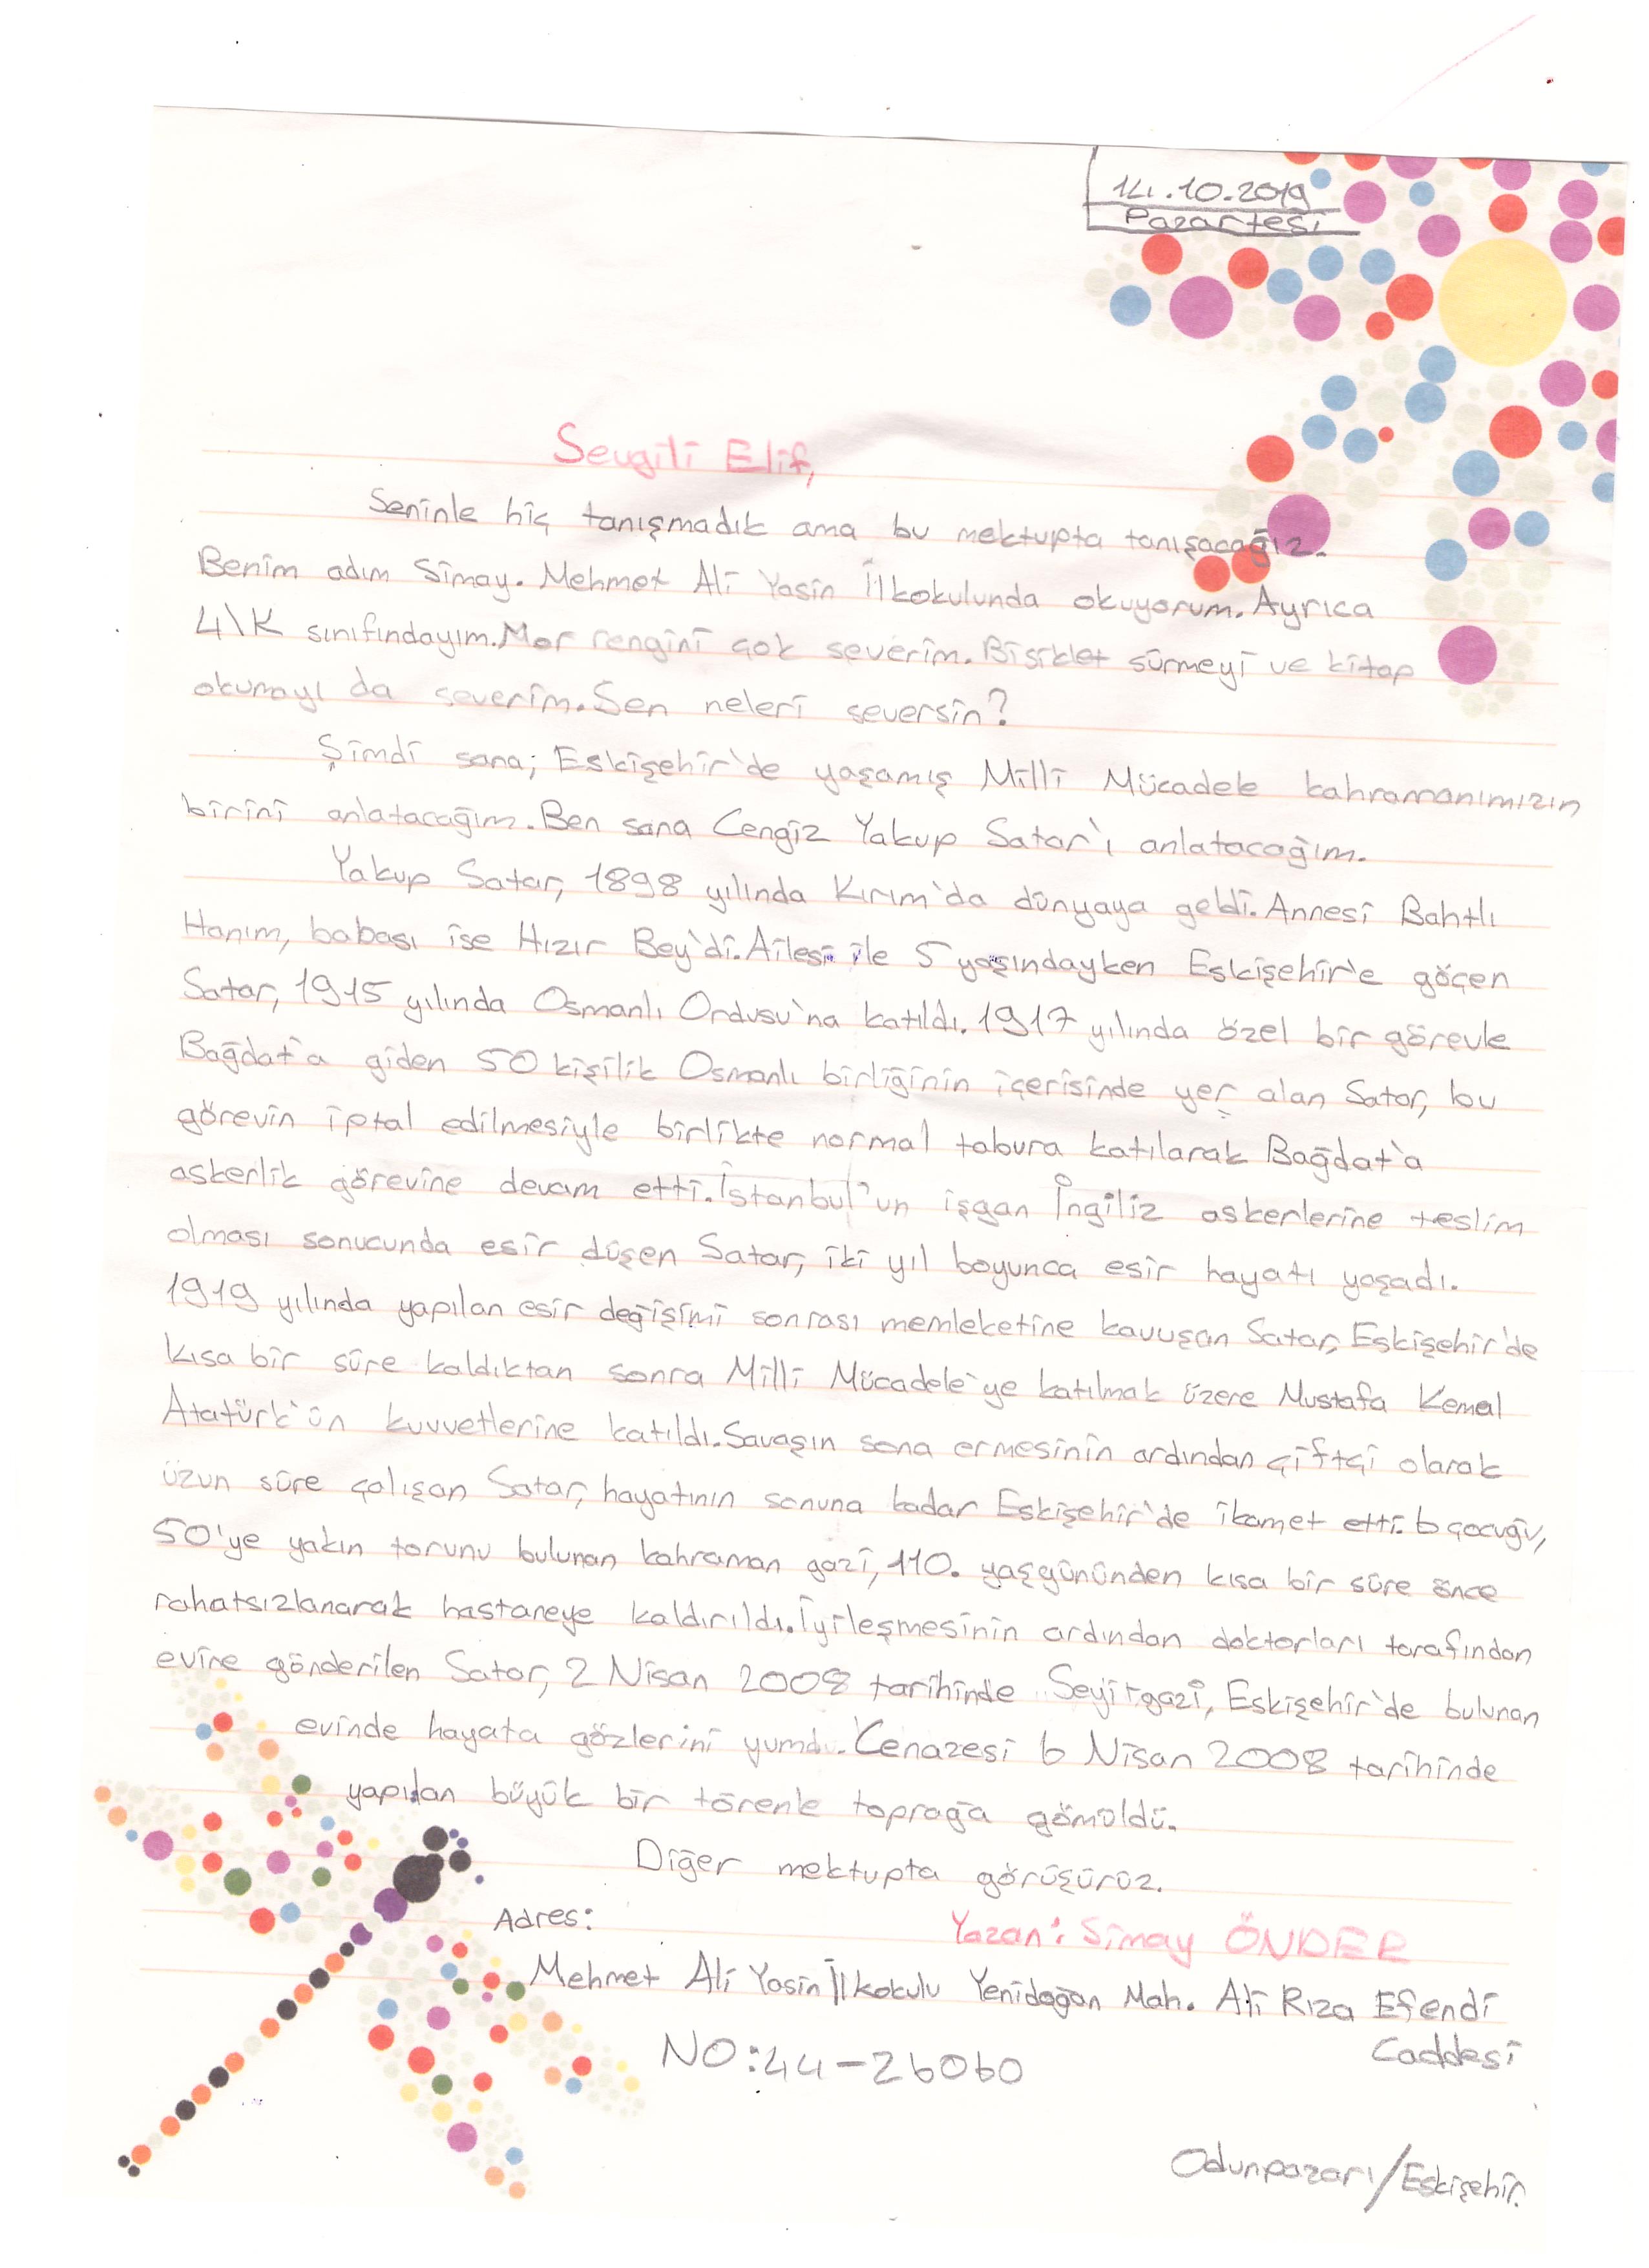 14.10.2019
Pazartesi
Sevgili Elif,
Seninle hiç tanışmadık ama bu mektupta tanışacağız.
Benim adım Simay. Mehmet Ali Yasin İlkokulunda okuyorum. Ayrıca
4\K sınıfındayım. Mor rengini çok severim. Bisiklet sürmeyi ve kitap
okumayı da severim. Sen neleri seversin?
Şimdi sana; Eskişehir'de yaşamış Milli Mücadele kahramanımızın
birini anlatacağım. Ben sana Cengiz Yakup Satar'ı anlatacağım.
Yakup Satar, 1898 yılında Kırım'da dünyaya geldi. Annesi Bahtlı
Hanım, babası ise Hızır Bey'di. Ailesi ile 5 yaşındayken Eskişehir'e göçen
Satar, 1915 yılında Osmanlı Ordusu'na katıldı. 1917 yılında özel bir görevle
Bağdat'a giden 50 kişilik Osmanlı birliğinin içerisinde yer alan Satar, bu
görevin iptal edilmesiyle birlikte normal tabura katılarak Bağdat'a
askerlik görevine devam etti. İstanbul'un işgan İngiliz askerlerine teslim
olması sonucunda esir düşen Satar, iki yıl boyunca esir hayatı yaşadı.
1919 yılında yapılan esir değişimi sonrası memleketine kavuşan Satar, Eskişehir'de
kısa bir süre kaldıktan sonra Milli Mücadele'ye katılmak üzere Mustafa Kemal
Atatürk'ün kuvvetlerine katıldı. Savaşın sona ermesinin ardından çiftçi olarak
uzun süre çalışan Satar, hayatının sonuna kadar Eskişehir'de ikamet etti. 6 çocuğu,
50'ye yakın torunu bulunan kahraman gazi, 110. yaşgününden kısa bir süre önce
rahatsızlanarak hastaneye kaldırıldı. İyileşmesinin ardından doktorları tarafından
evine gönderilen Satar, 2 Nisan 2008 tarihinde Seyitgazi, Eskişehir'de bulunan
evinde hayata gözlerini yumdu. Cenazesi 6 Nisan 2008 tarihinde
yapılan büyük bir törenle toprağa gömüldü.
Diğer mektupta görüşürüz.
Adres:
Yazan: Simay ÖNDER
Mehmet Ali Yasin İlkokulu Yenidoğan Mah. Ali Rıza Efendi
Caddesi
NO:44-26060
Odunpazarı/Eskişehir.